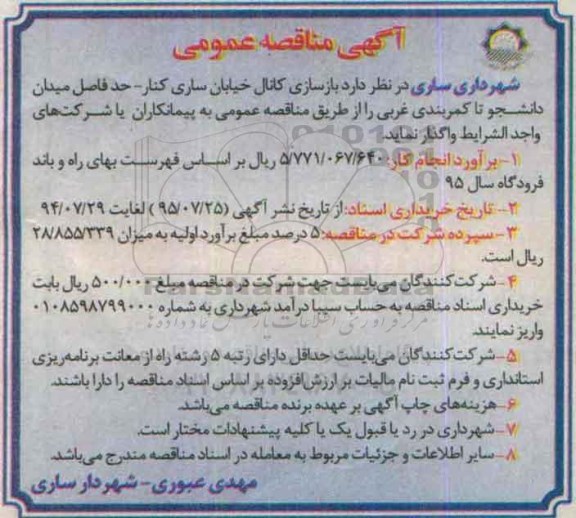 آگهی مناقصه عمومی
شهرداری ساری در نظر دارد بازسازی کانال خیابان ساری کنار- حد فاصل میدان
دانشجو تا کمربندی غربی را از طریق مناقصه عمومی به پیمانکاران یا شرکت‌های
واجد الشرایط واگذار نماید.
۱- برآورد انجام کار: ۵/۷۷۱/۰۶۷/۶۴۰ ریال بر اساس فهرست بهای راه و باند
فرودگاه سال ۹۵
۲- تاریخ خریداری اسناد: از تاریخ نشر آگهی (۹۵/۰۷/۲۵) لغایت ۹۴/۰۷/۲۹
۳- سپرده شرکت در مناقصه: ۵ درصد مبلغ برآورد اولیه به میزان ۲۸/۸۵۵/۳۳۹
ریال است.
۴- شرکت‌کنندگان می‌بایست جهت شرکت در مناقصه مبلغ ۵۰۰/۰۰۰ ریال بابت
خریداری اسناد مناقصه به حساب سیبا درآمد شهرداری به شماره ۰۱۰۸۵۹۸۷۹۹۰۰۰
واریز نمایند.
۵- شرکت‌کنندگان می‌بایست حداقل دارای رتبه ۵ رشته راه از معانت برنامه‌ریزی
استانداری و فرم ثبت نام مالیات بر ارزش افزوده بر اساس اسناد مناقصه را دارا باشند.
۶- هزینه‌های چاپ آگهی بر عهده برنده مناقصه می‌باشد.
۷- شهرداری در رد یا قبول یک یا کلیه پیشنهادات مختار است.
۸- سایر اطلاعات و جزئیات مربوط به معامله در اسناد مناقصه مندرج می‌باشد.
مهدی عبوری- شهردار ساری